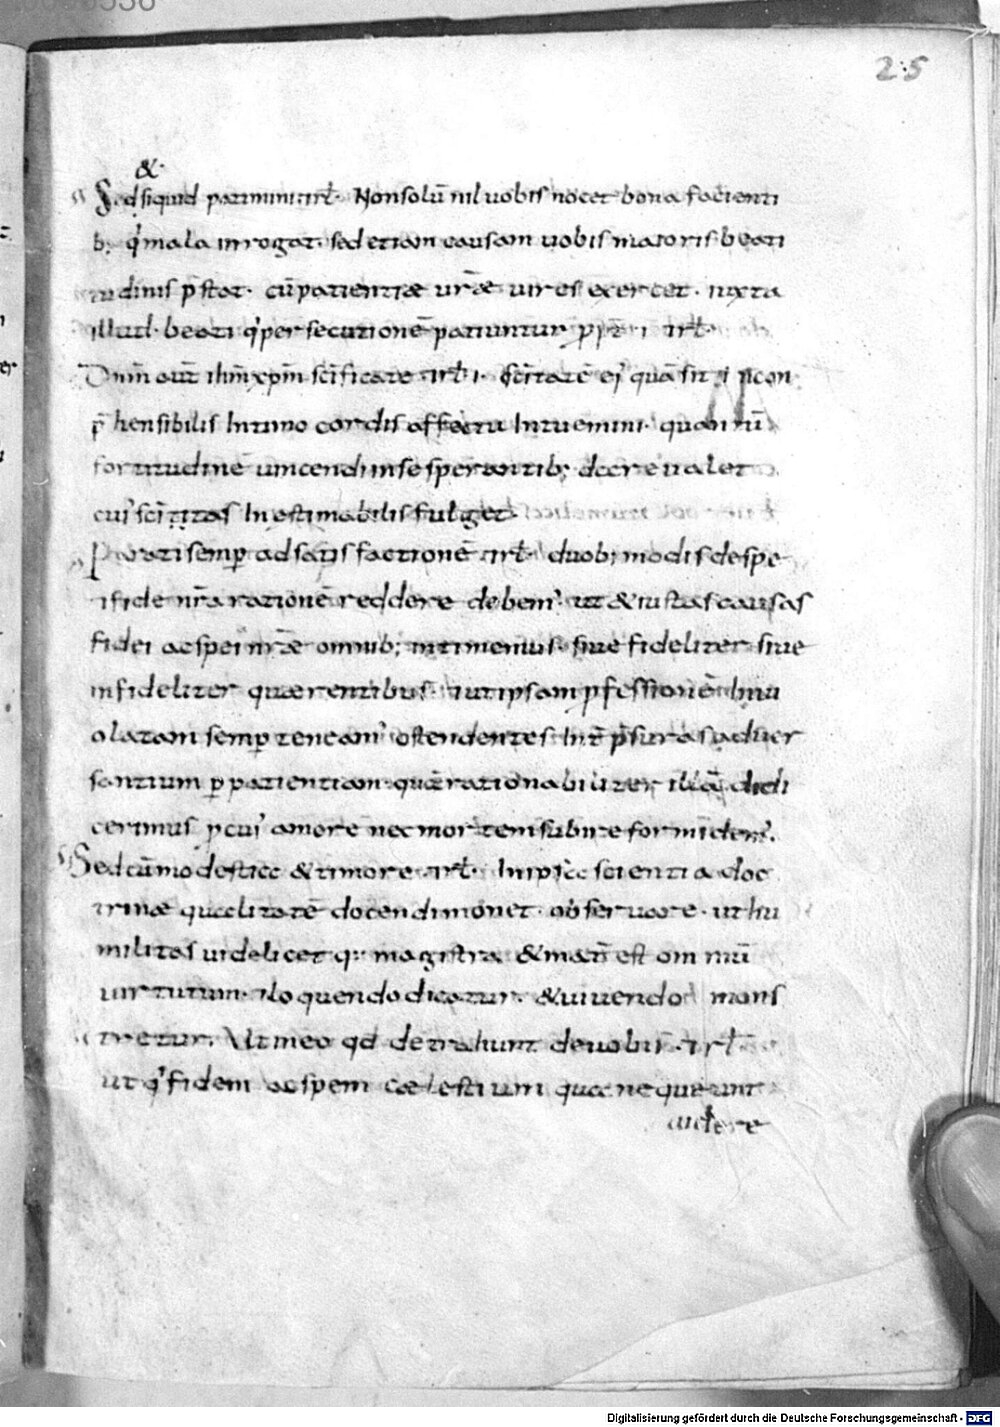 25
&
Sed siquid patimini· irł· Non solū nil uobis nocet bona facienti
b; q' mala inrogat· sed etiam causam uobis maioris beati
tudinis p̄stat· cū patientiæ urǣ uires exercet· iuxta
illud· beati q' persecutionē patiuntur ppt̄ i irł·
Dnm̄ aut̄ ihm̄ xpm̄ scificate irł i· scītatē ei' quā sit i incon
p̄hensibilis Intimo cordis affectu Intuemini· quantū
fortitudinē uincendi inse sperantib; dare ualet
cui' scītitas Inestimabilis fulget·
Parati semp ad satisfactionē irł· duob; modis despe
fide nr̄a rationē reddere debem'· ut & iustas causas
fidei ac spei nr̄æ omnib; intimemus· siue fideliter siue
infideliter quærentibus· ut ipsam pfessionē Inui
olatam semp teneam' ostendentes Int̄ p̄suras aduer
santium p patientiam· quā rationabiliter illā didi
cerimus p cui' amore nec mortem subire formidem'·
Sed cū modestia & timore irł· In ipsa scientia doc
trinæ qualitatē docendi monet· obseruare· ut hu
militas uidelicet q; magistra & mat̄ est omniū
uirtutum· & loquendo dicatur· & uiuendo mons
tretur· Ut in eo qd detrahunt deuobis· irł·
ut q' fidem ac spem cælestium qua nequeunt
uidere
Digitalisierung gefördert durch die Deutsche Forschungsgemeinschaft - DFG